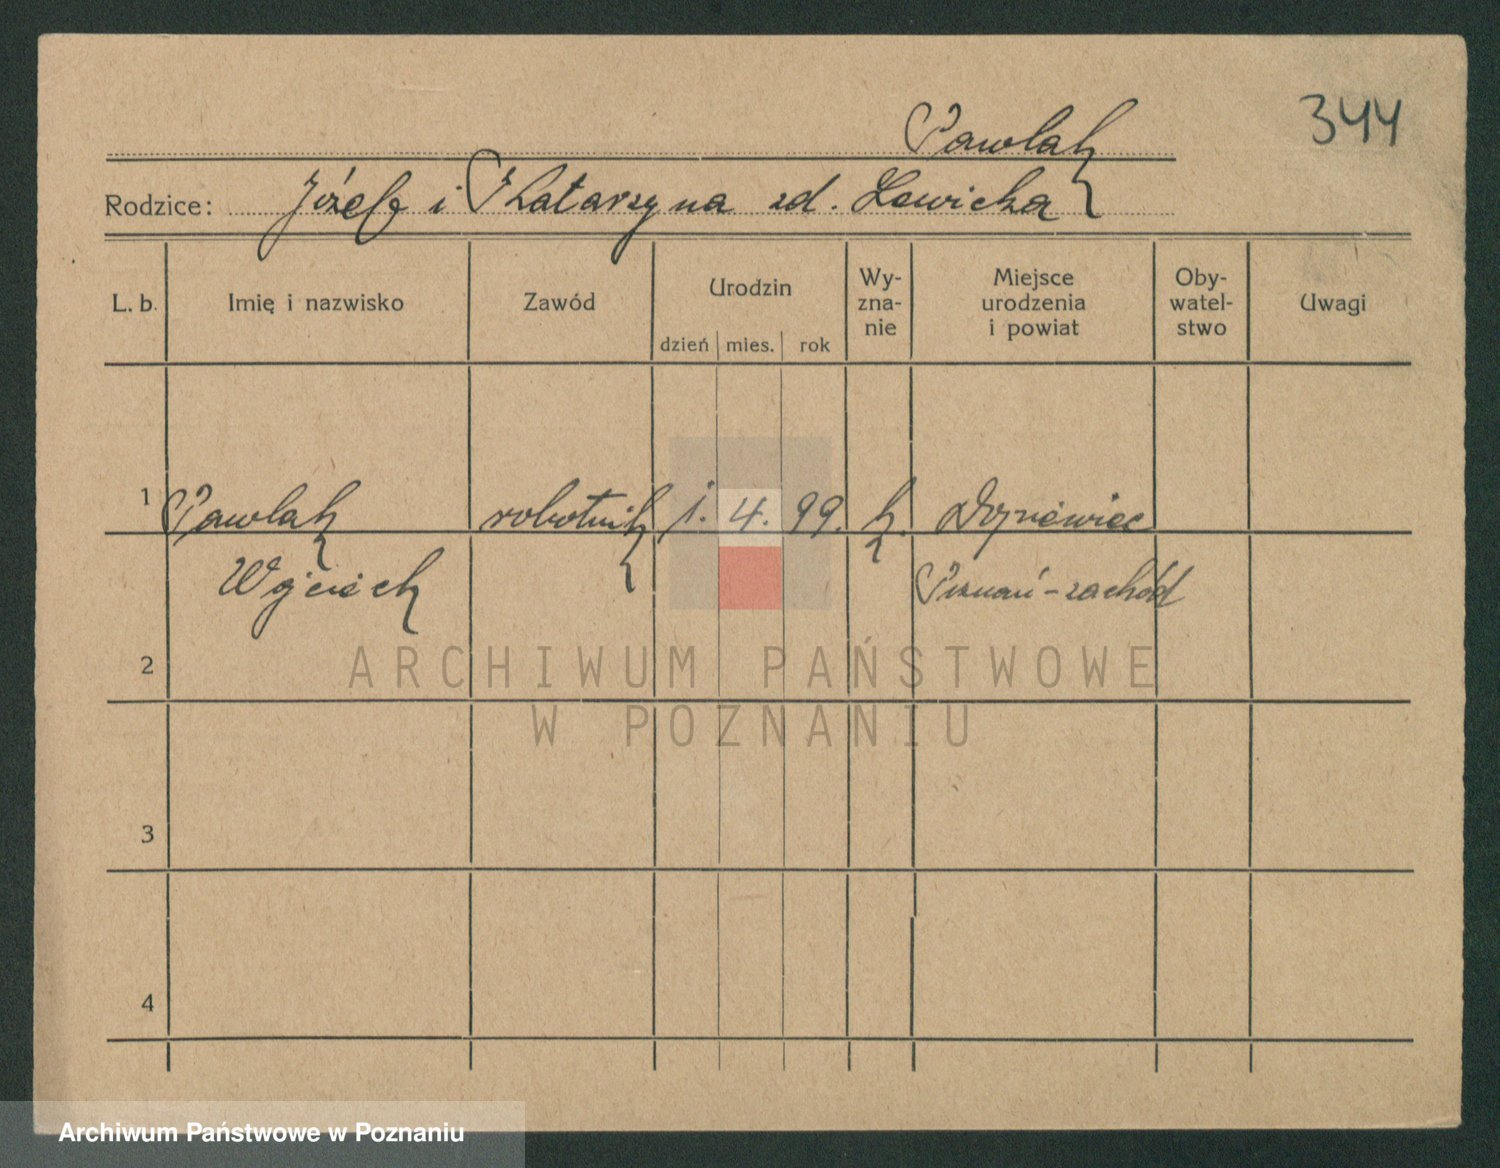 344
Pawlak
Rodzice: Józef i Katarzyna zd. Lewicka
L. b. Imię i nazwisko Zawód Urodzin Wy-zna-nie Miejsce urodzenia i powiat Oby-watel-stwo Uwagi
dzień mies. rok
1 Pawlak robotnik 1. 4. 99. k.
Wojciech Poznań-zachód
2
ARCHIWUM PAŃSTWOWE
W POZNANIU
3
4
Archiwum Państwowe w Poznaniu